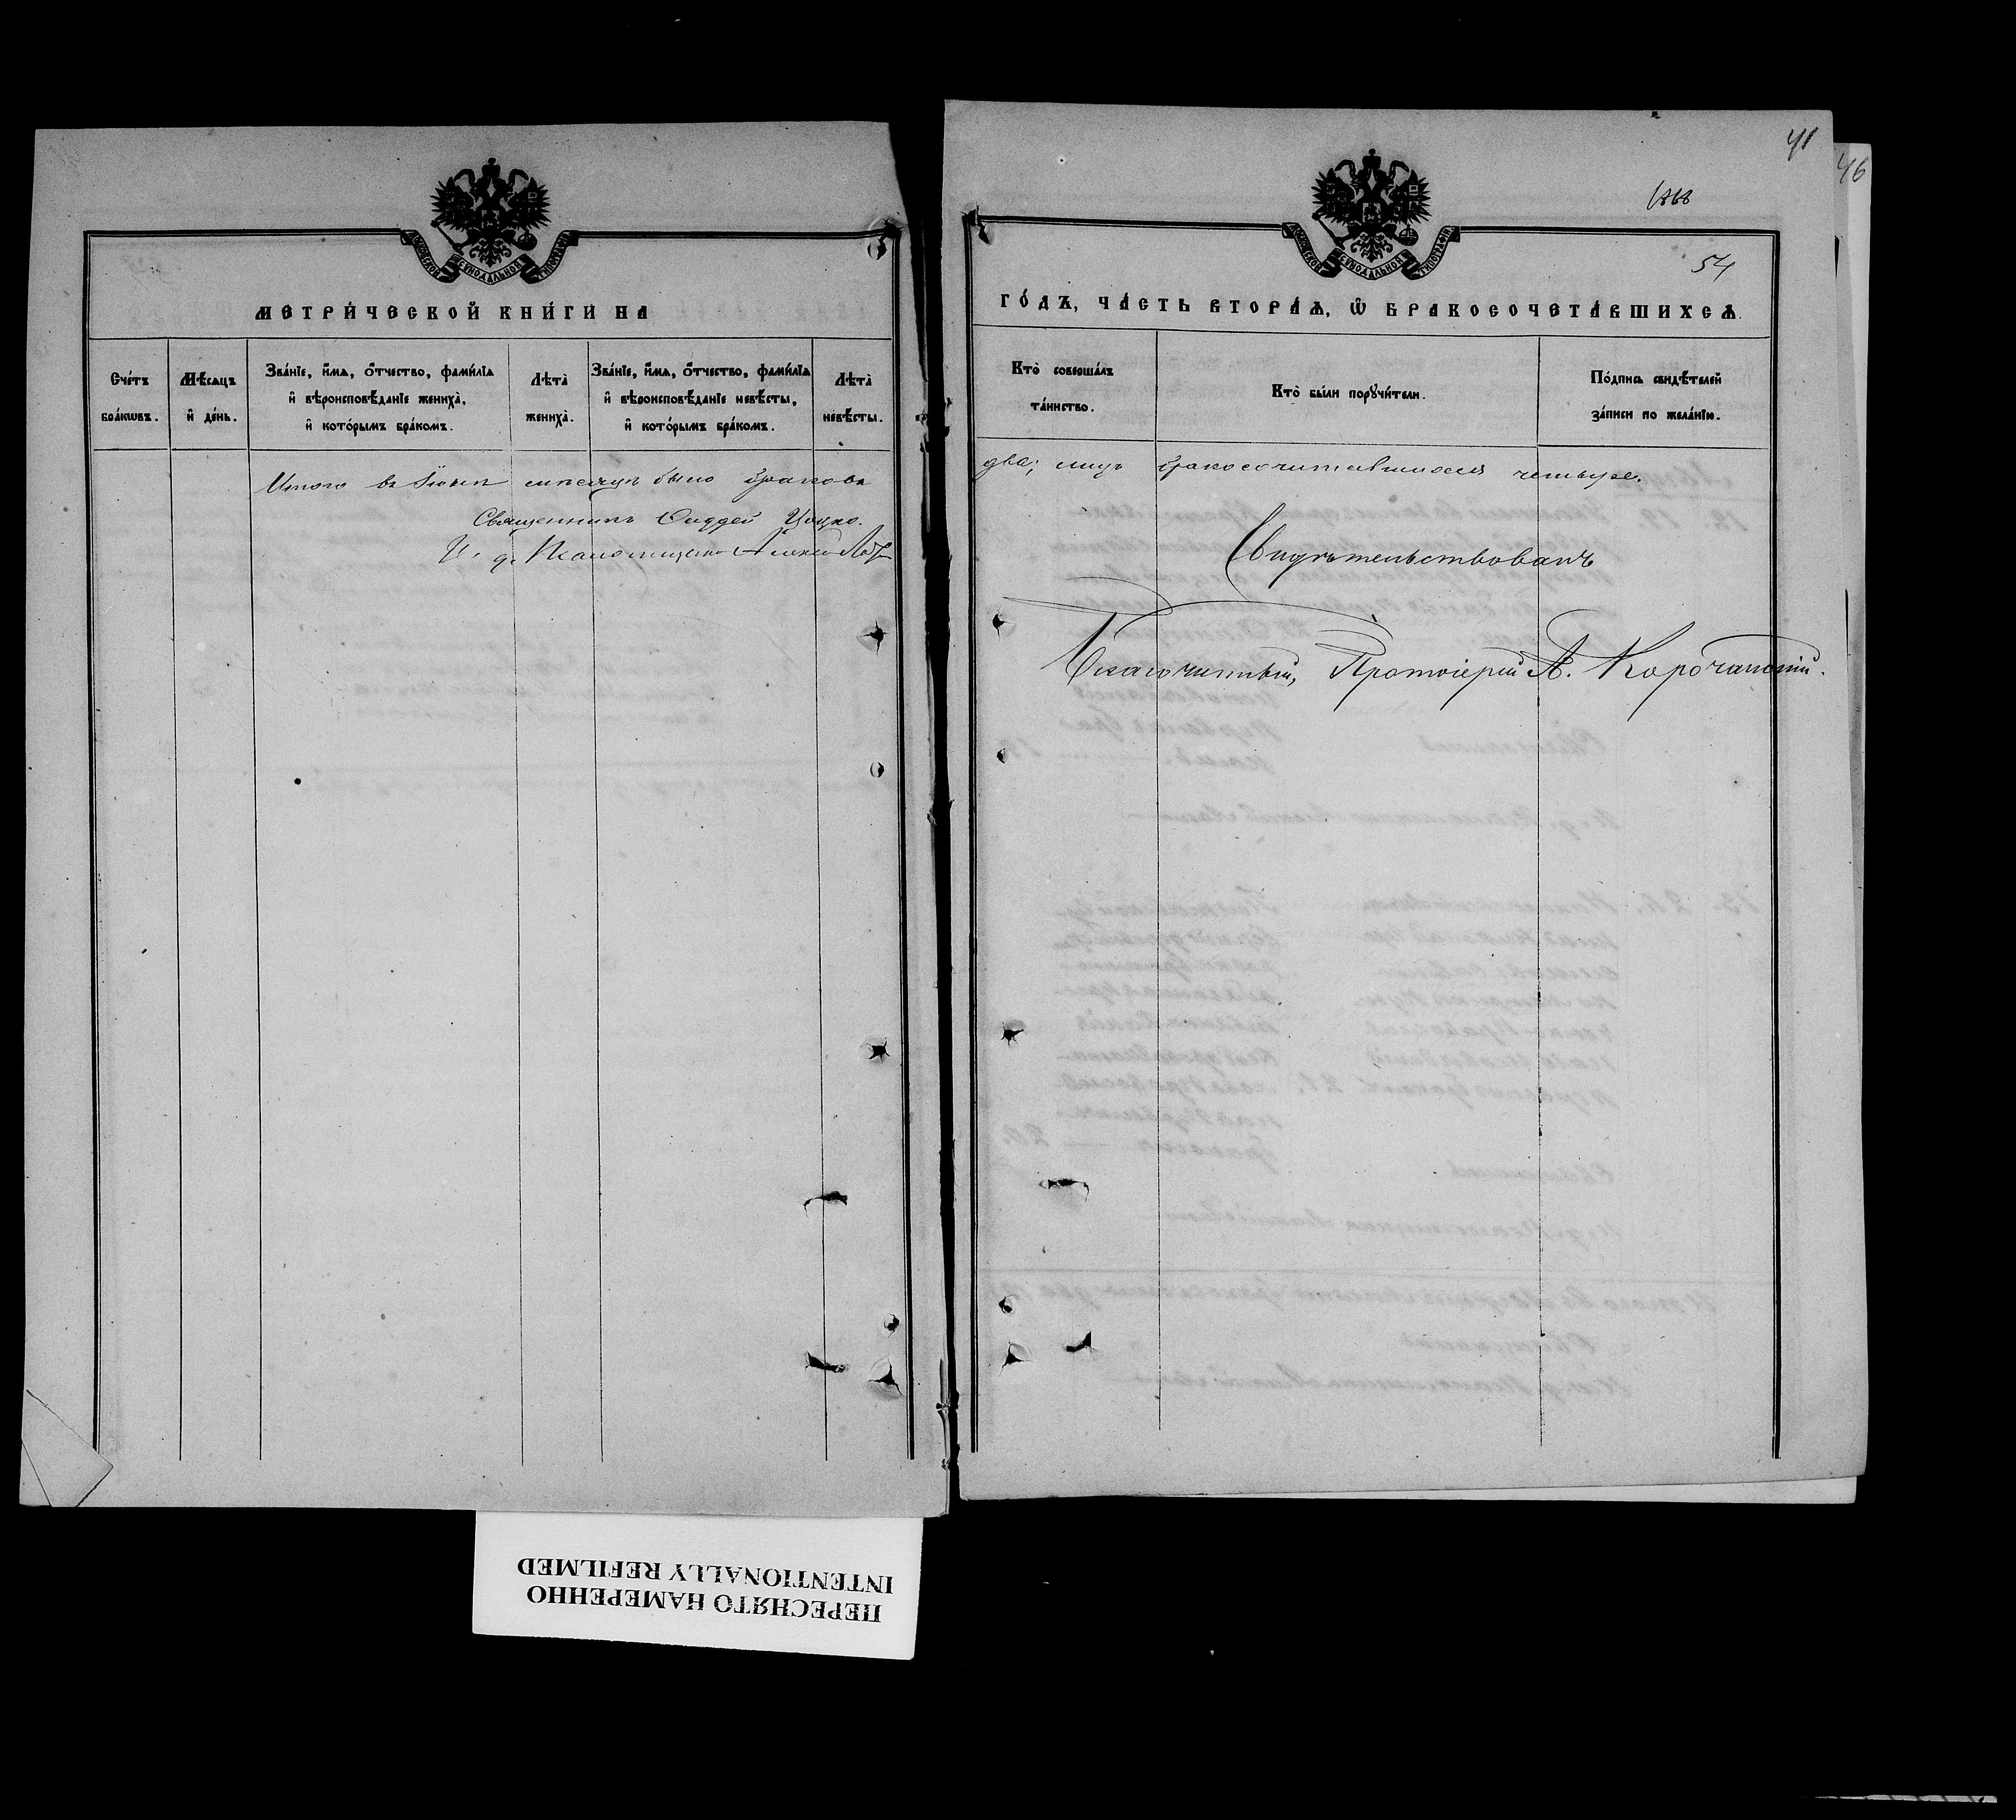 МОСКОВСКОЙ СѴНОДАЛЬНОЙ ТИПОГРАФІИ
МЕТРИ́ЧЕСКОЙ КНИ́ГИ НА
Сче́тъ бра́кωвъ.
Мѣ́сяцъ и҆ де́нь.
Зва́нїе, и҆́мѧ, ѻ҆́тчество, фами́лїѧ
и҆ вѣроисповѣ́данїе жениха̀,
и҆ кото́рымъ бра́комъ.
Лѣта̀ жениха̀.
Зва́нїе, и҆́мѧ, ѻ҆́тчество, фами́лїѧ
и҆ вѣроисповѣ́данїе невѣ́сты,
и҆ кото́рымъ бра́комъ.
Лѣта̀ невѣ́сты.
Итого въ Іюнѣ мѣсяцѣ было браковъ
Священникъ Фаддей
И. д. Псаломщика Алексѣй
41
46
1868
54
МОСКОВСКОЙ СѴНОДАЛЬНОЙ ТИПОГРАФІИ
ГО́ДЪ, ЧА́СТЬ ВТОРА́Ѧ, Ѽ БРАКОСОЧЕТА́ВШИХСѦ.
Кто̀ соверша́лъ
та́инство.
Кто̀ бы́ли порꙋчи́тели.
По́дпись свидѣ́телей
за́писи по жела́нїю.
два; лицъ бракосочитавшихся четыре.
Свидѣтельствовалъ
Благочинный, Протоіерей А. Корочанскій.
ПЕРЕСНЯТО НАМЕРЕННО
INTENTIONALLY REFILMED